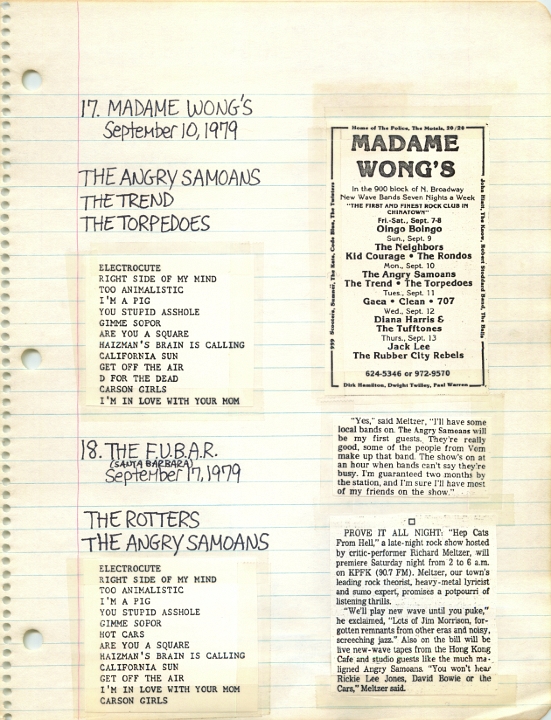 17. MADAME WONG'S
September 10, 1979
THE ANGRY SAMOANS
THE TREND
THE TORPEDOES
ELECTROCUTE
RIGHT SIDE OF MY MIND
TOO ANIMALISTIC
I'M A PIG
YOU STUPID ASSHOLE
GIMME SOPOR
ARE YOU A SQUARE
HAIZMAN'S BRAIN IS CALLING
CALIFORNIA SUN
GET OFF THE AIR
D FOR THE DEAD
CARSON GIRLS
I'M IN LOVE WITH YOUR MOM
18. THE F.U.B.A.R.
(SANTA BARBARA)
September 17, 1979
THE ROTTERS
THE ANGRY SAMOANS
ELECTROCUTE
RIGHT SIDE OF MY MIND
TOO ANIMALISTIC
I'M A PIG
YOU STUPID ASSHOLE
GIMME SOPOR
HOT CARS
ARE YOU A SQUARE
HAIZMAN'S BRAIN IS CALLING
CALIFORNIA SUN
GET OFF THE AIR
I'M IN LOVE WITH YOUR MOM
CARSON GIRLS
Home of The Police, The Motels, 20/20
MADAME
WONG'S
In the 900 block of N. Broadway
New Wave Bands Seven Nights a Week
"THE FIRST AND FINEST ROCK CLUB IN
CHINATOWN"
Fri.-Sat., Sept. 7-8
Oingo Boingo
Sun., Sept. 9
The Neighbors
Kid Courage • The Rondos
Mon., Sept. 10
The Angry Samoans
The Trend • The Torpedoes
Tues., Sept. 11
Gaea • Clean • 707
Wed., Sept. 12
Diana Harris &
The Tufftones
Thurs., Sept. 13
Jack Lee
The Rubber City Rebels
624-5346 or 972-9570
Dirk Hamilton, Dwight Twilley, Paul Warren
Code Blue, The Twisters
John Hiatt, The Know, Robert Stoddard Band, The Heils
"Yes," said Meltzer, "I'll have some
local bands on. The Angry Samoans will
be my first guests. They're really
good, some of the people from Vom
make up that band. The show's on at
an hour when bands can't say they're
busy. I'm guaranteed two months by
the station, and I'm sure I'll have most
of my friends on the show."
PROVE IT ALL NIGHT: "Hep Cats
From Hell," a late-night rock show hosted
by critic-performer Richard Meltzer, will
premiere Saturday night from 2 to 6 a.m.
on KPFK (90.7 FM). Meltzer, our town's
leading rock theorist, heavy-metal lyricist
and sumo expert, promises a potpourri of
listening thrills.
"We'll play new wave until you puke,"
he exclaimed, "Lots of Jim Morrison, for-
gotten remnants from other eras and noisy,
screeching jazz." Also on the bill will be
live new-wave tapes from the Hong Kong
Cafe and studio guests like the much ma-
ligned Angry Samoans. "You won't hear
Rickie Lee Jones, David Bowie or the
Cars," Meltzer said.